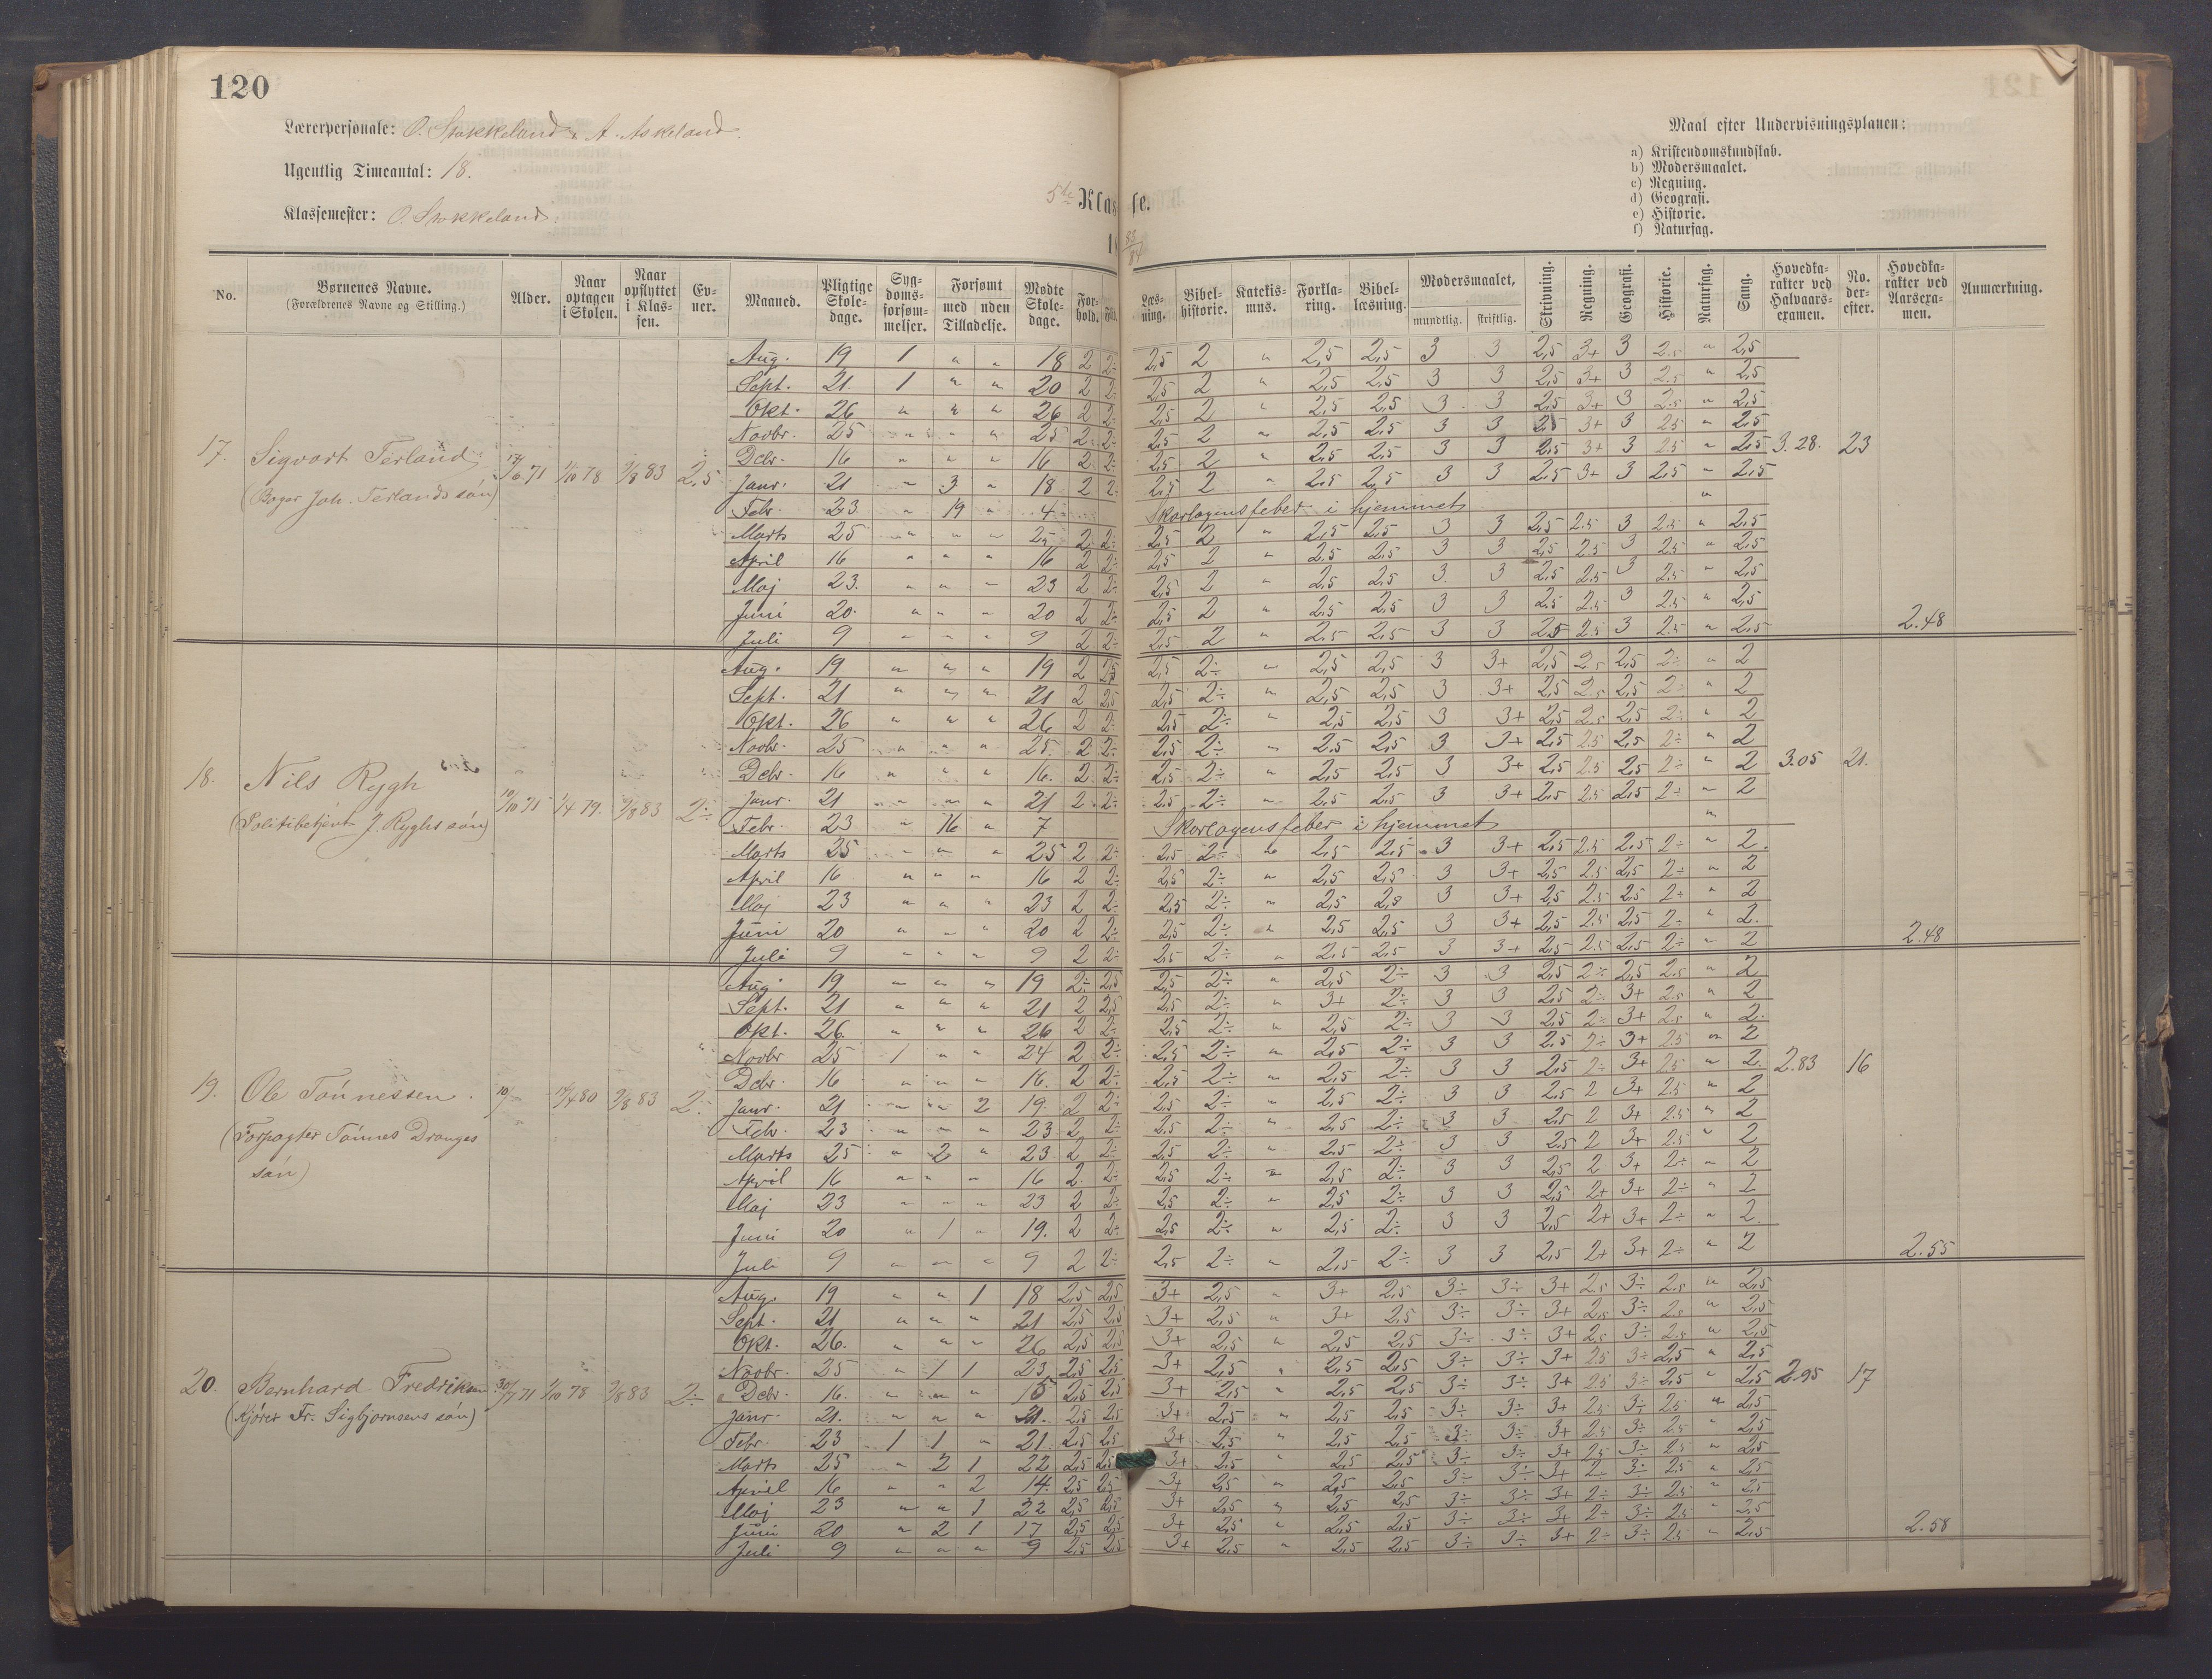 120
Lærerpersonale: O. Stokkeland & A. Askeland.
Ugentlig Timeantal: 18.
Klassemester: O. Stokkeland.
5te Klasse.
18 83/84
Maal efter Undervisningsplanen:
a) Kristendomskundskab.
b) Modersmaalet.
c) Regning.
d) Geografi.
e) Historie.
f) Naturfag.
No. Børnenes Navne. (Forældrenes Navne og Stilling.) Alder. Naar optagen i Skolen. Naar opflyttet i Klassen. Evner. Maaned. Pligtige Skoledage. Sygdomsforsømmelser. Forsømt med uden Tilladelse. Mødte Skoledage. Forhold. Flid. Læsning. Bibelhistorie. Katekismus. Forklaring. Bibellæsning. Modersmaalet, mundtlig. skriftlig. Skrivning. Regning. Geografi. Historie. Naturfag. Sang. Hovedkarakter ved Halvaarsexamen. No. derefter. Hovedkarakter ved Aarsexamen. Anmærkning.
Aug. 19 1 " " 18 2 2÷ 2,5 2 " 2,5 2,5 3 3 2,5 3+ 3 2.5 " 2,5
Sept. 21 1 " " 20 2 2÷ 2,5 2 " 2,5 2,5 3 3 2,5 3+ 3 2.5 " 2,5
Okt. 26 " " " 26 2 2÷ 2,5 2 " 2,5 2,5 3 3 2,5 3+ 3 2.5 " 2,5
Novbr. 25 " " " 25 2 2÷ 2,5 2 " 2,5 2,5 3 3 2,5 3+ 3 2.5 " 2,5
17. Sigvart Terland 17/10 71 1/10 78 2/8 83 2,5 Debr. 16 " " " 16 2 2÷ 2,5 2 " 2,5 2,5 3 3 2,5 3+ 3 2.5 " 2,5 3.28. 23
(Bager Joh. Terlands søn) Janr. 21 " 3 " 18 2 2÷ 2,5 2 " 2,5 2,5 3 3 2,5 3+ 3 2,5 " 2,5
Febr. 23 " 19 " 4 Skarlagensfeber i hjemmet "
Marts 25 " " " 25 2 2÷ 2,5 2 " 2,5 2,5 3 3 2,5 2.5 3 2.5 " 2,5
April 16 " " " 16 2 2÷ 2,5 2 " 2,5 2,5 3 3 2,5 2.5 3 2.5 " 2,5
Maj 23. " " " 23 2 2÷ 2,5 2 " 2,5 2,5 3 3 2,5 2.5 3 2.5 " 2,5
Juni 20. " " " 20 2 2÷ 2,5 2 " 2,5 2,5 3 3 2,5 2.5 3 2.5 " 2,5
Juli 9 " " " 9 2 2÷ 2,5 2 " 2,5 2,5 3 3 2,5 2.5 3 2.5 " 2,5 2.48
Aug. 19 " " " 19 2 2,5 2,5 2÷ " 2,5 2,5 3 3+ 2,5 2.5 2,5 2÷ " 2
Sept. 21 " " " 21 2 2,5 2,5 2÷ " 2,5 2,5 3 3+ 2,5 2.5 2,5 2÷ " 2
Okt. 26 " " " 26 2 2÷ 2,5 2÷ " 2,5 2,5 3 3+ 2,5 2.5 2,5 2÷ " 2
Novbr. 25 " " " 25 2 2÷ 2,5 2÷ " 2,5 2,5 3 3+ 2,5 2.5 2,5 2÷ " 2
18. Nils Rygh 10/10 71 1/4 79. 2/8 83 2÷ Debr. 16 " " " 16. 2 2÷ 2,5 2÷ " 2,5 2,5 3 3+ 2,5 2.5 2,5 2÷ " 2 3.05 21.
(Politibetjent J. Ryghs søn) Janr. 21 " " " 21 2 2÷ 2,5 2÷ " 2,5 2,5 3 3+ 2,5 2.5 2,5 2÷ " 2
Febr. 23 " 16 " 7 Skarlagensfeber i hjemmet "
Marts 25 " " " 25 2 2÷ 2,5 2÷ " 2,5 2,5 3 3+ 2,5 2.5 2,5 2÷ " 2
April 16 " " " 16 2 2÷ 2,5 2÷ " 2,5 2,5 3 3+ 2,5 2.5 2,5 2÷ " 2
Maj 23 " " " 23 2 2÷ 2,5 2÷ " 2,5 2,5 3 3+ 2,5 2.5 2,5 2÷ " 2
Juni 20 " " " 20 2 2÷ 2,5 2÷ " 2,5 2,5 3 3+ 2,5 2.5 2,5 2÷ " 2.
Juli 9 " " " 9 2 2÷ 2,5 2÷ " 2,5 2,5 3 3+ 2,5 2.5 2,5 2÷ " 2 2.48
Aug 19 " " " 19 2÷ 2,5 2,5 2÷ " 2,5 2÷ 3 3 2,5 2÷ 2,5 2.5 " 2
Sept. 21 " " " 21 2 2,5 2,5 2÷ " 3+ 2÷ 3 3 2,5 2÷ 3+ 2.5 " 2
Okt. 26. " " " 26 2 2÷ 2,5 2÷ " 2,5 2÷ 3 3 2,5 2÷ 3+ 2.5 " 2
Novbr 25 1 " " 24 2 2÷ 2,5 2÷ " 2,5 2÷ 3 3 2,5 2÷ 3+ 2.5 " 2
19. Ole Tønnessen. 10/ 14/4 80 2/8 83 2÷ Debr. 16 " " " 16. 2 2÷ 2,5 2÷ " 2,5 2÷ 3 3 2,5 2÷ 3+ 2.5 " 2 2.83 16
(Forpagter Tønnes Dranges Janr. 21 " " 2 19. 2 2÷ 2,5 2÷ " 2,5 2÷ 3 3 2,5 2 3+ 2.5 " 2
søn) Febr. 23 " " " 23 2 2÷ 2,5 2÷ " 2,5 2÷ 3 3 2,5 2 3+ 2.5 " 2
Marts 25 " 2 " 23 2 2÷ 2,5 2÷ " 2,5 2÷ 3 3 2,5 2 3+ 2.5 " 2
April 16 " " " 16 2 2÷ 2,5 2÷ " 2,5 2÷ 3 3 2,5 2 3+ 2÷ " 2
Maj 23 " " " 23 2 2÷ 2,5 2÷ " 2,5 2÷ 3 3 2,5 2+ 3+ 2÷ " 2
Juni 20 " 1 " 19. 2 2÷ 2,5 2÷ " 2,5 2÷ 3 3 2,5 2+ 3+ 2÷ " 2
Juli 9 " " " 9 2 2÷ 2,5 2÷ " 2,5 2÷ 3 3 2,5 2+ 3+ 2÷ " 2 2.55
Aug. 19 " " 1 18 2,5 2,5 3+ 2,5 " 3+ 2,5 3÷ 3÷ 3+ 2.5 3÷ 2.5 " 2,5
Sept. 21 " " " 21 2,5 2,5 3+ 2,5 " 3+ 2,5 3÷ 3÷ 3+ 2.5 3÷ 2.5 " 2,5
Okt. 26. " " " 26 2,5 2,5 3+ 2,5 " 2,5 2,5 3÷ 3÷ 3+ 2.5 3÷ 2.5 " 2,5
Novbr. 25 " 1 1 23 2,5 2,5 3+ 2,5 " 2,5 2,5 3÷ 3÷ 3+ 2.5 3÷ 2,5 " 2,5
20. Bernhard Fredriksen 30/7 71 1/10 78 2/8 83 2÷ Debr. 16. " " " 16 2,5 2,5 3+ 2,5 " 2,5 2,5 3÷ 3÷ 3+ 2.5 3÷ 2,5 " 2,5 2.95 17
(Kjører Fr. Sigbjørnsens søn) Janr. 21. " " " 21. 2,5 2,5 3+ 2,5 " 2,5 2,5 3÷ 3÷ 3+ 2.5 3÷ 2.5 " 2,5
Febr. 23 1 1 " 21. 2,5 2,5 3+ 2,5 " 2,5 2,5 3÷ 3÷ 3+ 2.5 3÷ 2.5 " 2,5
Marts 25 " 2 1 22 2,5 2,5 3+ 2,5 " 2,5 2,5 3÷ 3÷ 3+ 2.5 3÷ 2.5 " 2,5
April 16 " " 2 14. 2,5 2,5 3+ 2,5 " 2,5 2,5 3÷ 3÷ 3+ 2÷ 3÷ 2.5 " 2,5
Maj 23 " " 1 22 2,5 2,5 3+ 2,5 " 2,5 2,5 3÷ 3÷ 3+ 2÷ 3÷ 2.5 " 2,5
Juni 20 " 2 1 17 2,5 2,5 3+ 2,5 " 2,5 2,5 3÷ 3÷ 3+ 2÷ 3÷ 2.5 " 2,5
Juli 9 " " " 9 2,5 2,5 3+ 2,5 " 2,5 2,5 3÷ 3÷ 3+ 2÷ 3÷ 2.5 " 2,5 2.58